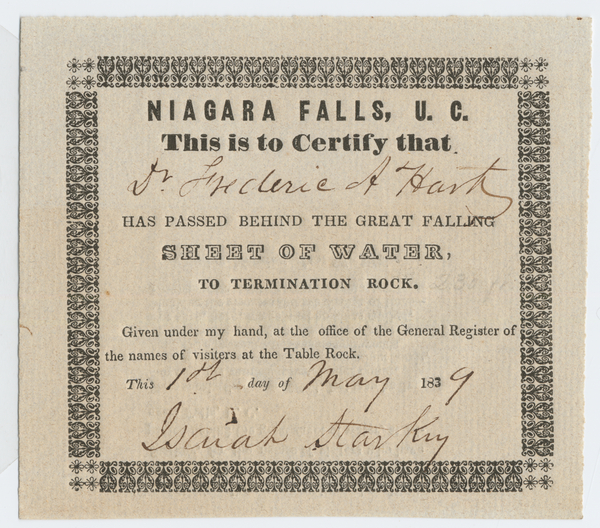 NIAGARA FALLS, U. C.
This is to Certify that
Dr Frederic A Hart
HAS PASSED BEHIND THE GREAT FALLING
SHEET OF WATER,
TO TERMINATION ROCK.
Given under my hand, at the office of the General Register of
the names of visiters at the Table Rock.
This 1st day of May 1839
Isaiah Starkey